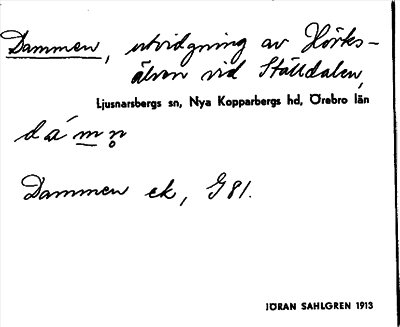 Dammen, utvidgning av Hörks-
älven vid Ställdalen,
Ljusnarsbergs sn, Nya Kopparbergs hd, Örebro län
dám̲n̥
Dammen ek, G 81.
JÖRAN SAHLGREN 1913